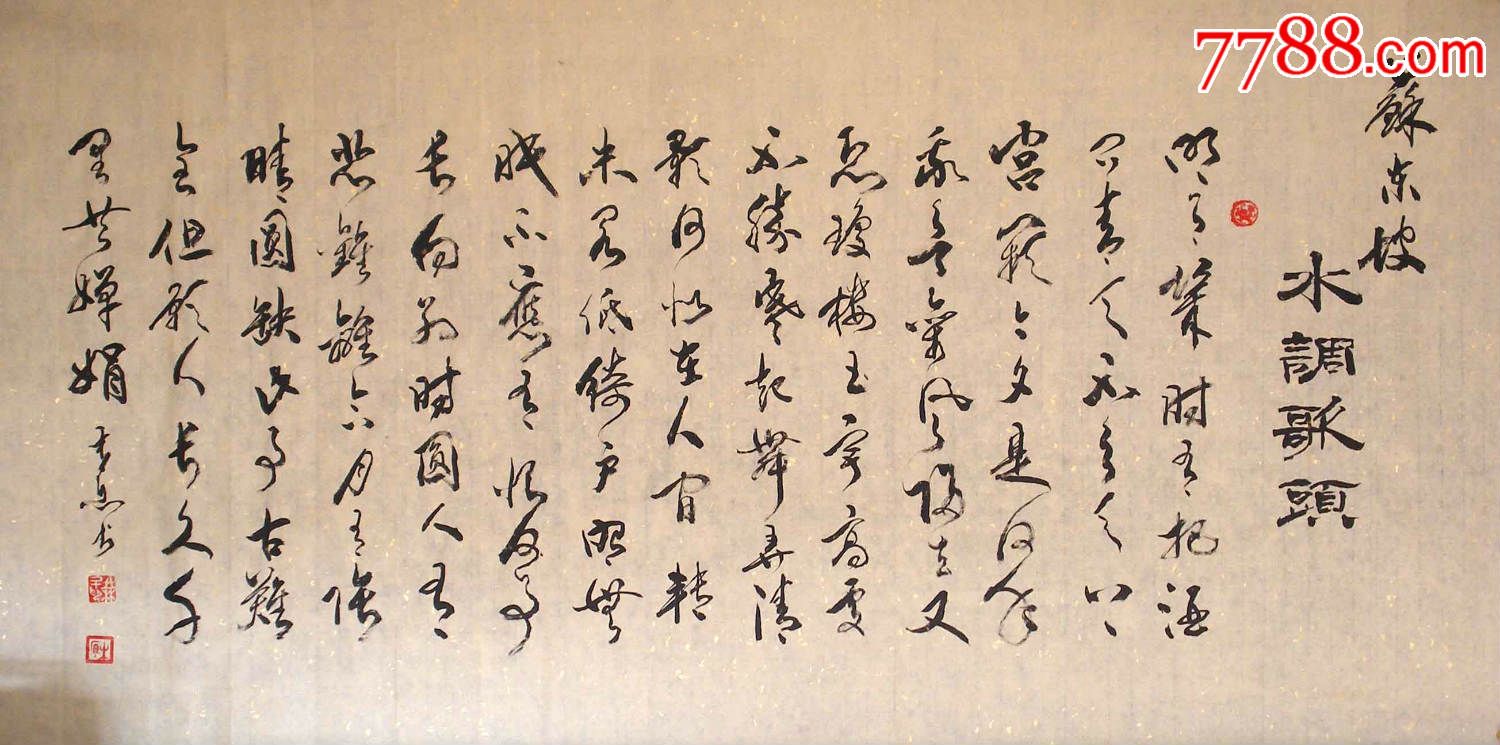 7788.com
蘇东坡
水調歌頭
明月幾时有把酒
问青天不知天上
宫闕今夕是何年
我欲乘风歸去又
恐瓊樓玉宇高處
不勝寒起舞弄清
影何似在人间轉
朱阁低綺户照無
眠不應有恨何事
长向别时圆人有
悲歡離合月有陰
晴圓缺此事古難
全但願人长久千
里共嬋娟